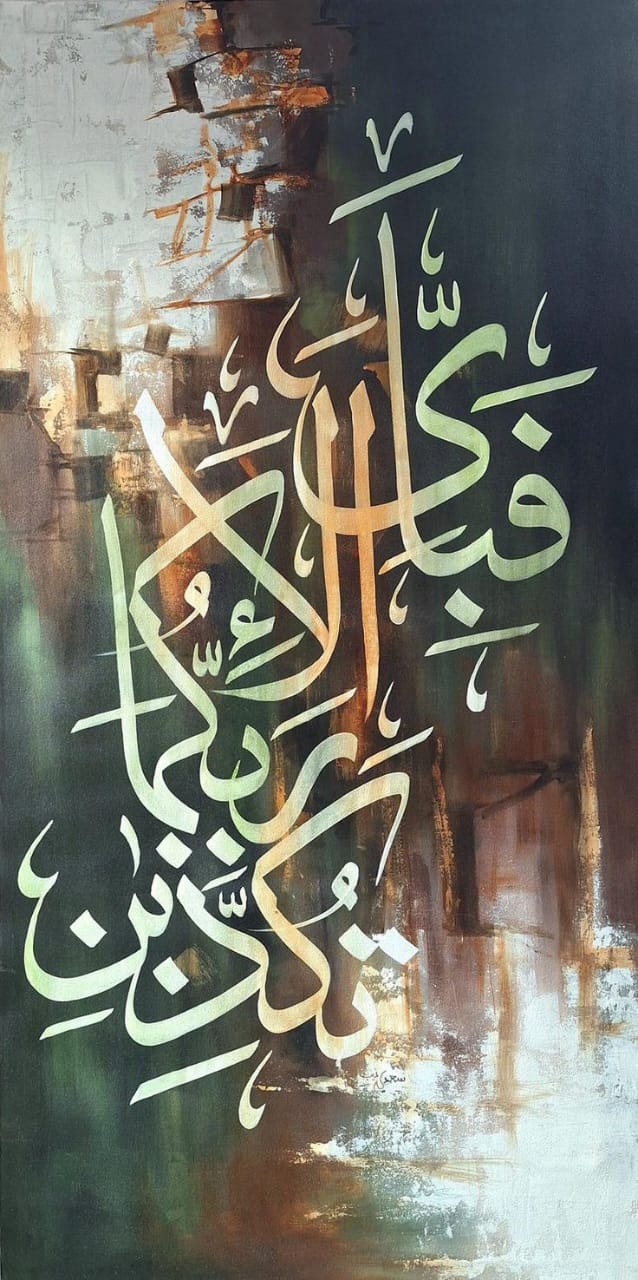 فَبِأَيِّ آلَاءِ
رَبِّكُمَا
تُكَذِّبَانِ